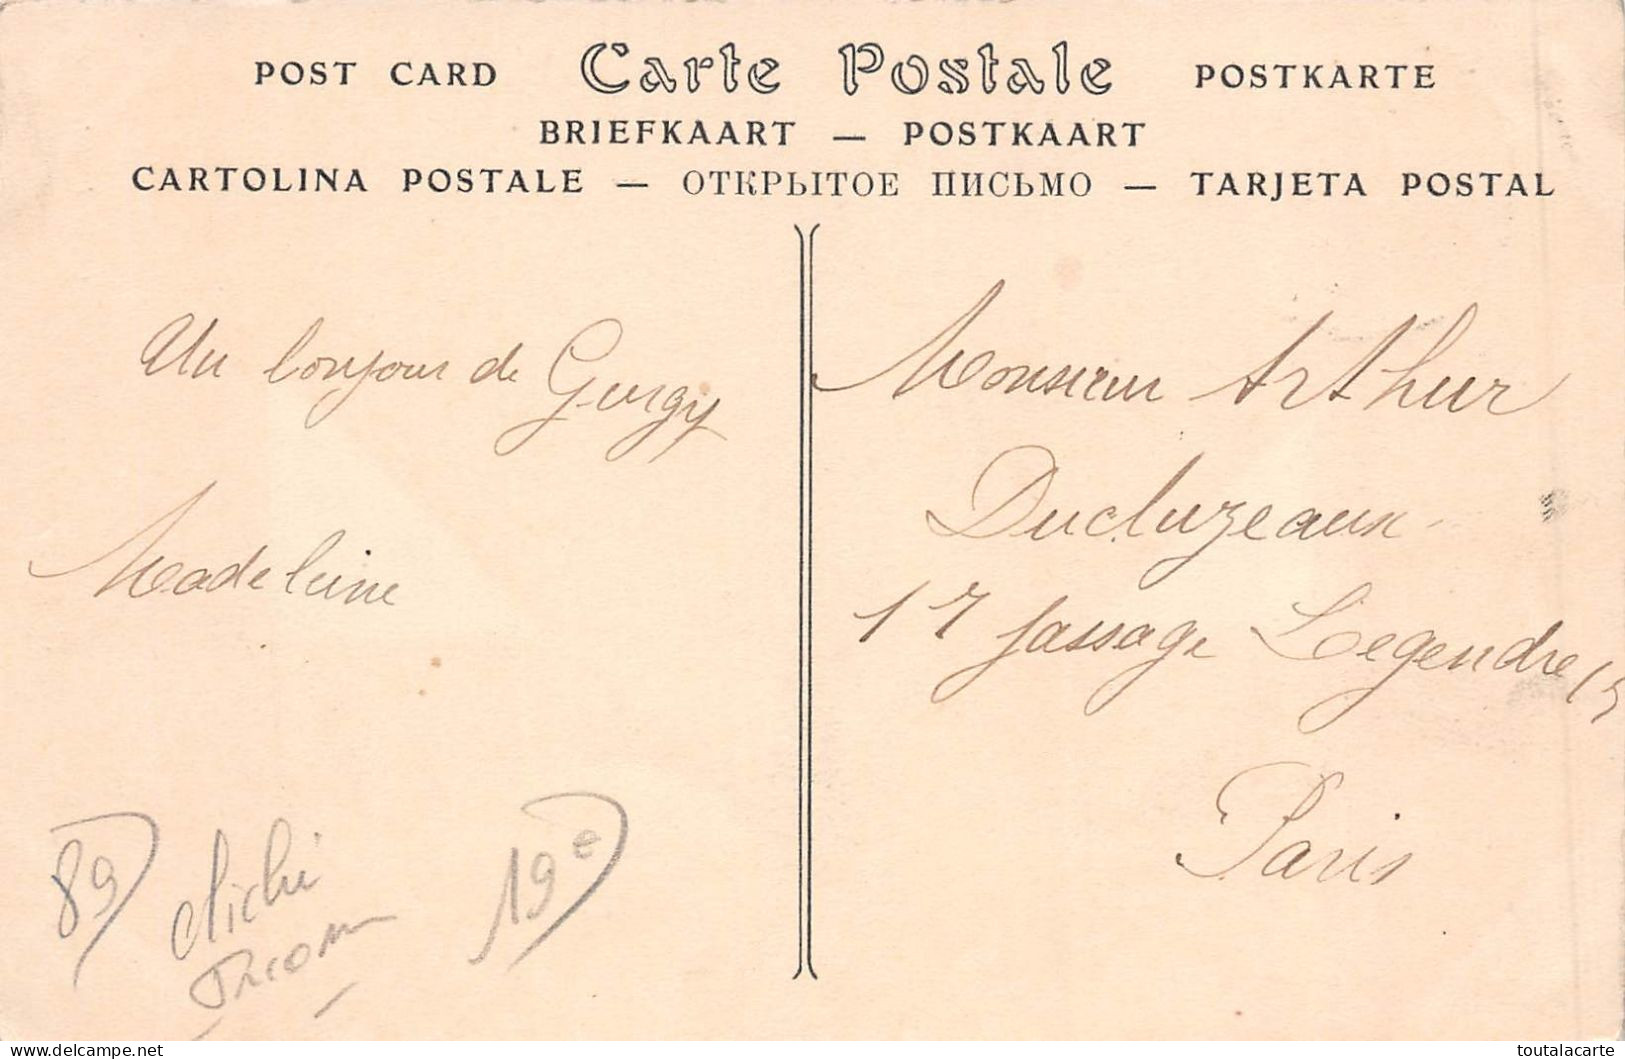 POST CARD Carte Postale POSTKARTE
BRIEFKAART — POSTKAART
CARTOLINA POSTALE — ОТКРЫТОЕ ПИСЬМО — TARJETA POSTAL
Un bonjour de Gurgy
Madeleine
Monsieur Arthur
Ducluzeaux
17 passage Legendre 17
Paris
89
cliché
19e
delcampe.net
toutalacarte